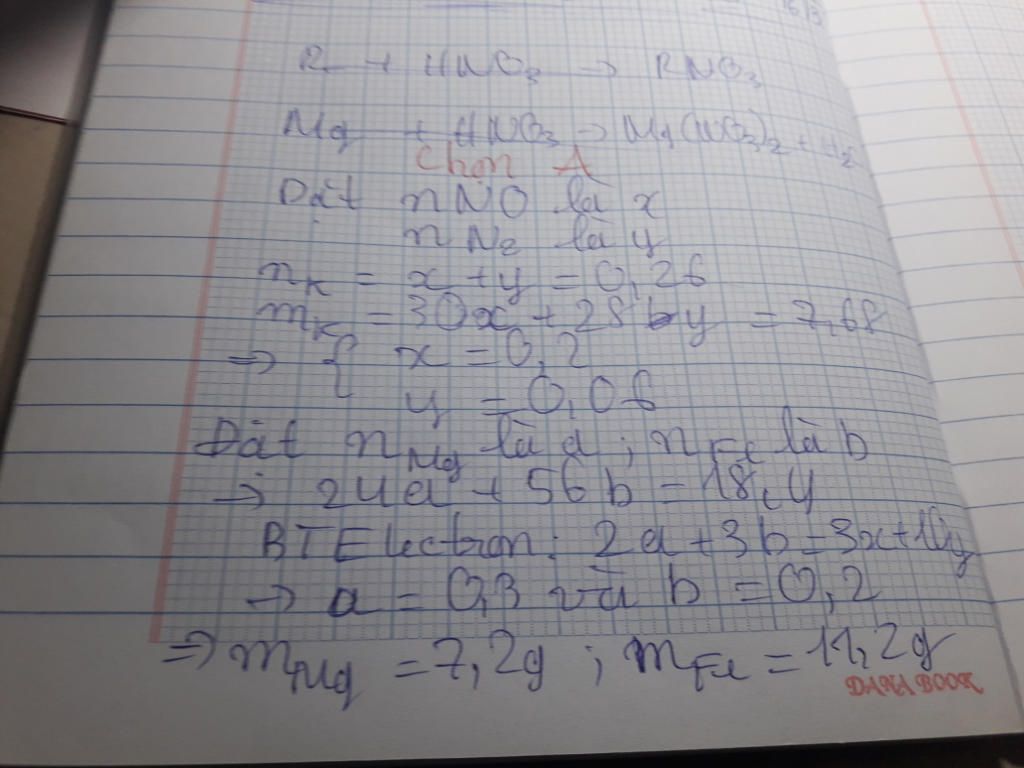 R + HNO3 → RNO3
Mg + HNO3 → Mg(NO3)2 + H2
Chọn A
Đặt nNO là x
nN2 là y
nK = x + y = 0,26
mK = 30x + 28 y = 7,68
⇒ { x = 0,2
y = 0,06
Đặt nMg là a ; nFe là b
→ 24a + 56b = 18,4
BTElectron: 2a + 3b = 3x + 10y
→ a = 0,3 và b = 0,2
⇒ mMg = 7,2g ; mFe = 11,2g
DANA BOOK